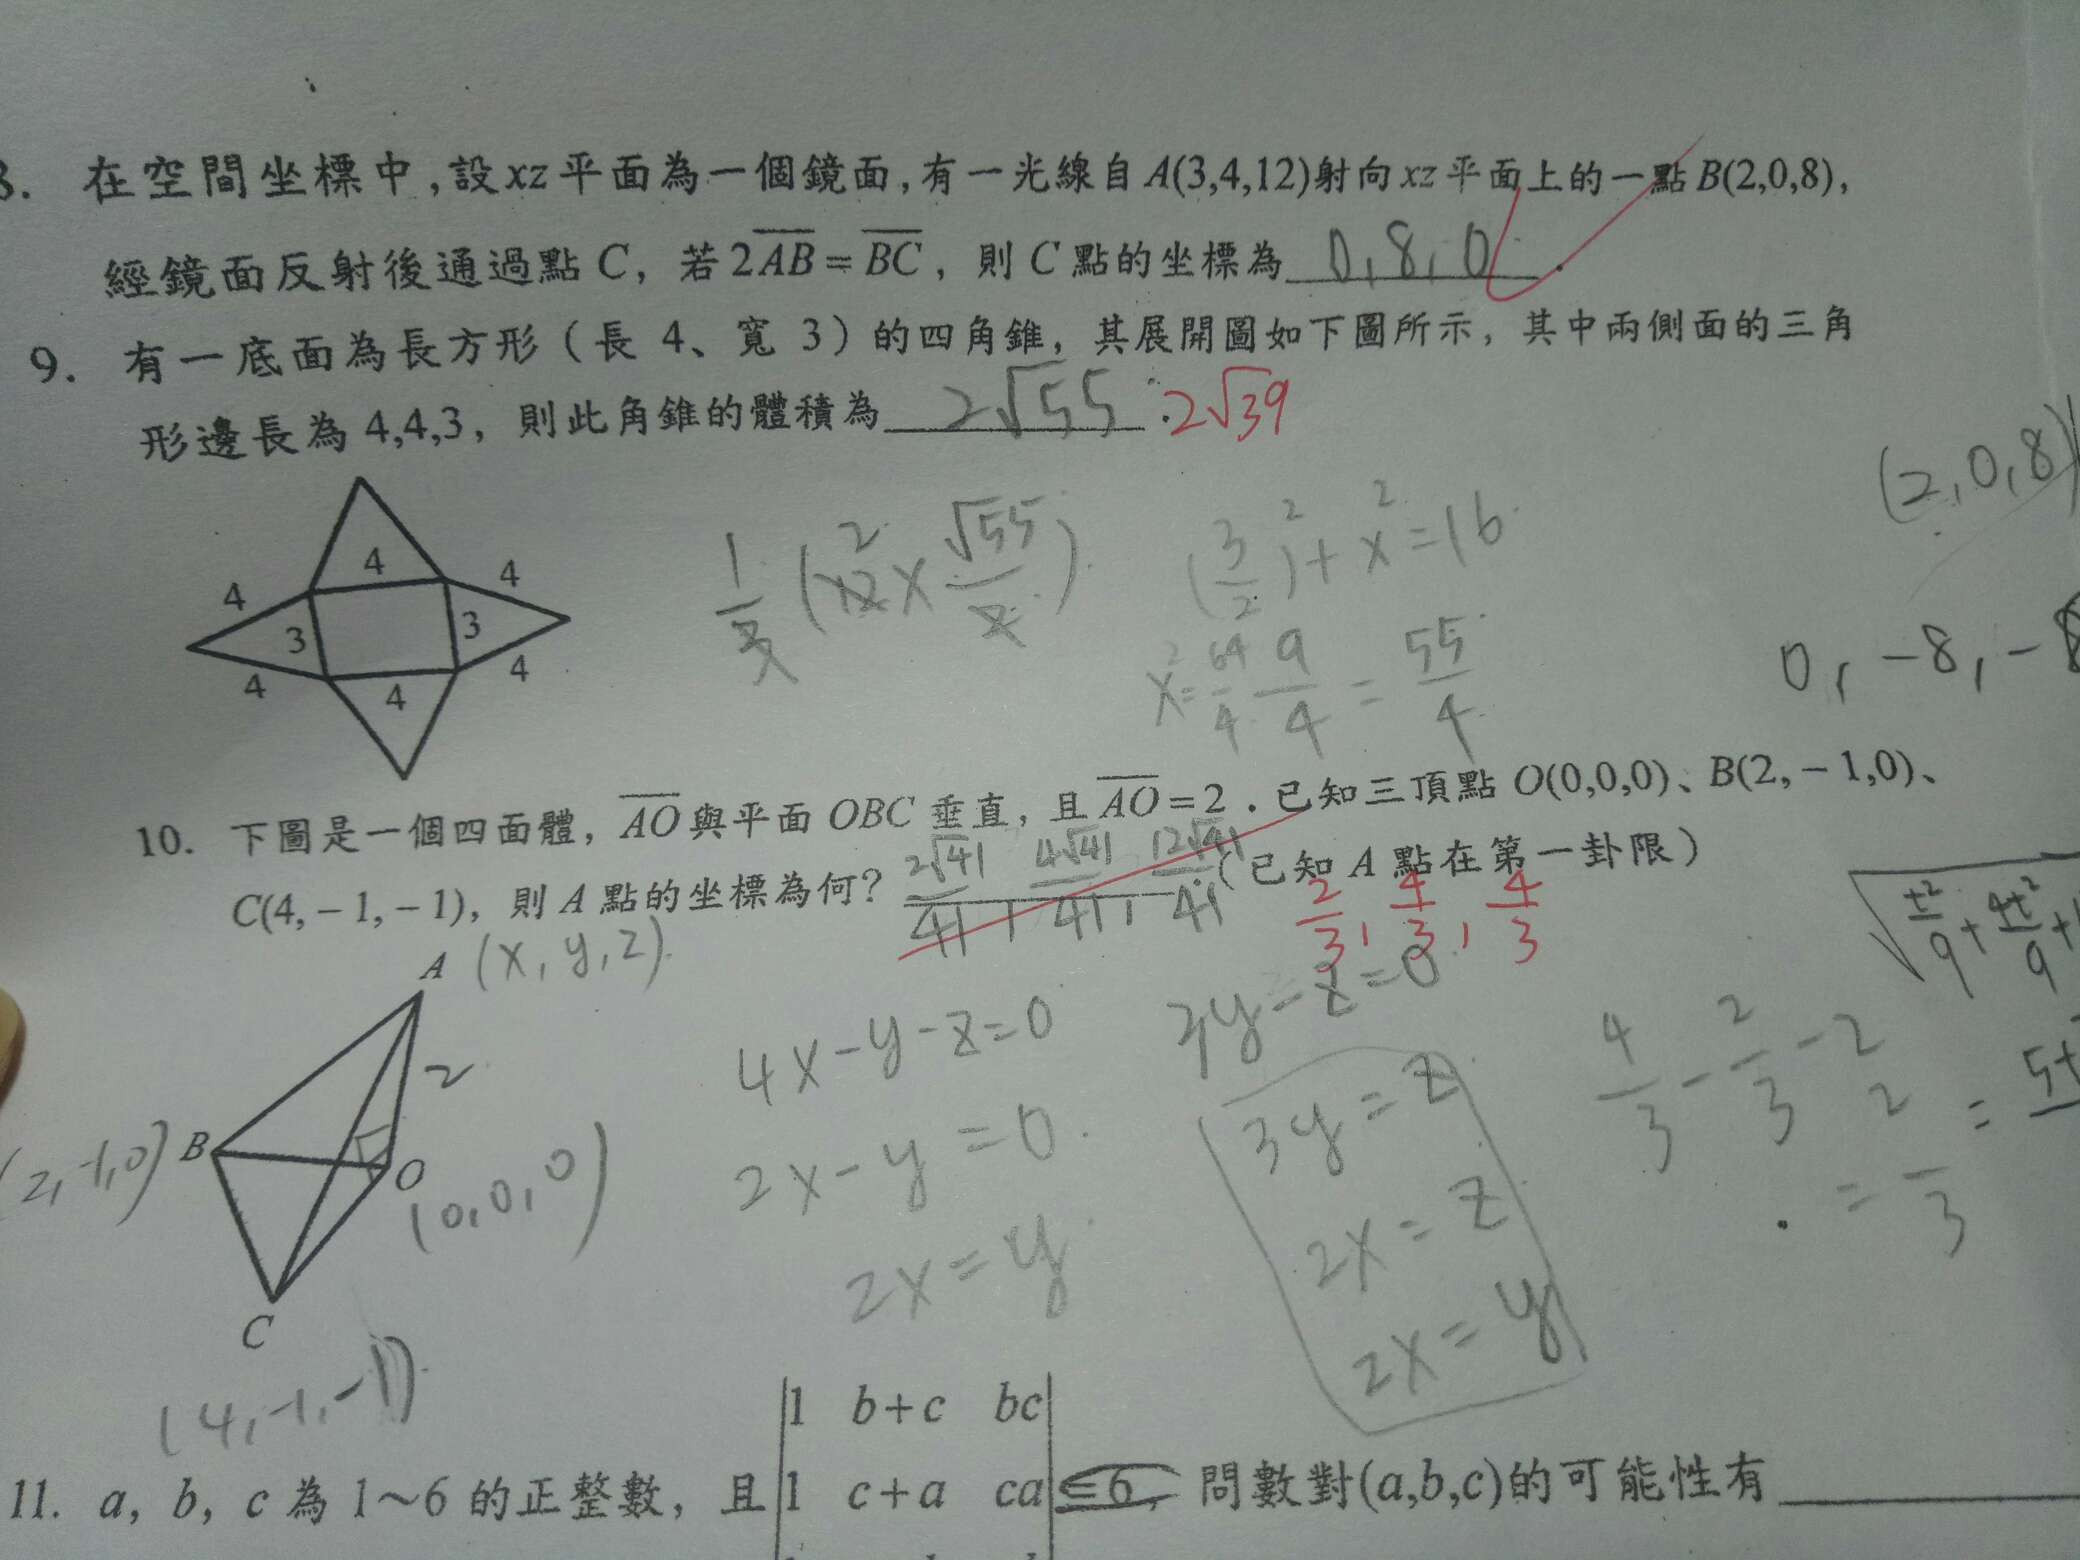 8. 在空間坐標中,設xz平面為一個鏡面,有一光線自A(3,4,12)射向xz平面上的一點B(2,0,8),
經鏡面反射後通過點C, 若2AB=BC, 則C點的坐標為 0,8,0 .
9. 有一底面為長方形(長 4、寬 3)的四角錐, 其展開圖如下圖所示, 其中兩側面的三角
形邊長為4,4,3, 則此角錐的體積為 2√55 . 2√39
(2,0,8)
4
4
4
3
3
4
4
4
(3/2)²+x²=16
x²=64/4 9/4 = 55/4
0,-8,-8
10. 下圖是一個四面體, AO與平面OBC垂直, 且AO=2.已知三頂點O(0,0,0)、B(2,-1,0)、
C(4,-1,-1), 則A點的坐標為何? 2√41/41, 4√41/41, 12√41/41 (已知A點在第一卦限)
2/3, 4/3, 4/3
A (x,y,z)
2
B (2,-1,0)
O (0,0,0)
C
(4,-1,-1)
4x-y-z=0
2x-y=0
2x=y
2y-z=0
3y=z
2x=z
2x=y
11. a, b, c為1~6的正整數, 且 ≤6, 問數對(a,b,c)的可能性有
1 b+c bc
1 c+a ca